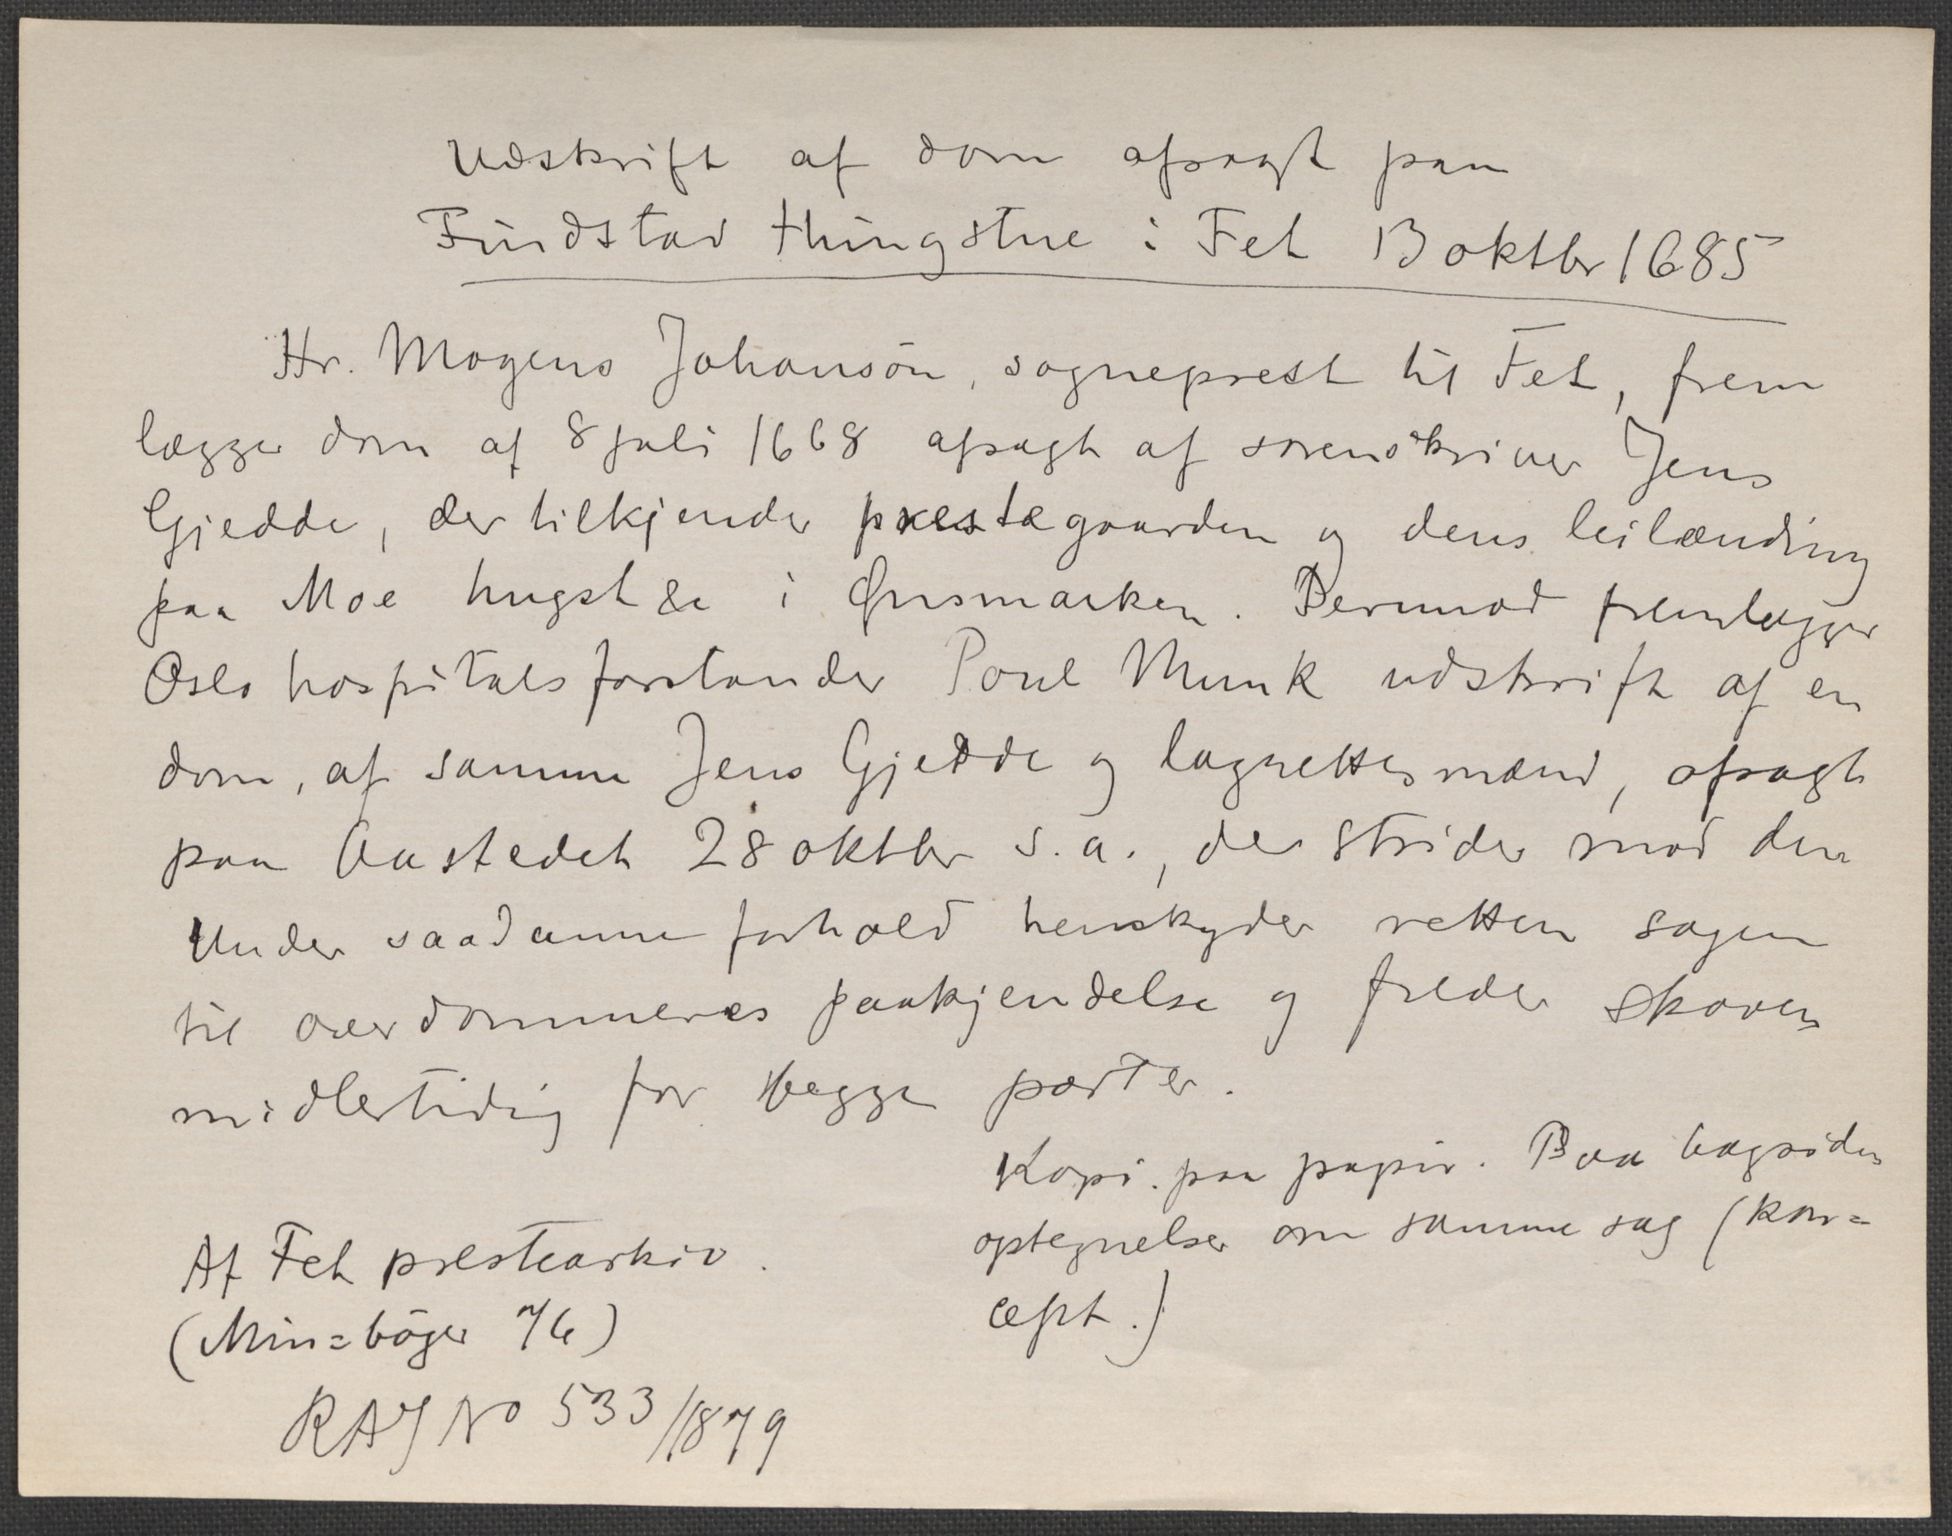 Udskrift af dom afsagt paa
Findstad thingstue i Fet 13 oktbr 1685
Hr. Mogens Johansön, sogneprest til Fet, frem
lægger dom af 8 juli 1668 afsagt af sorenskriver Jens
Gjedde, der tilkjender prestegaarden og dens leilænding
paa Moe hugst &c i Gusmarken. Derimod fremlægger
Oslo hospitalsforstander Poul Munk udskrift af en
dom, af samme Jens Gjedde og lagrettesmænd, afsagt
paa aastedet 28 oktbr s.a., der strider mod den
Under saadanne forhold henskyder retten sagen
til overdommeres paakjendelse og freder skoven
midlertidig for begge parter.
Kopi paa papir. Paa bagsiden
optegnelser om samme sag (kon=
cept.)
Af Fet prestearkiv.
(Min=böger 7/6)
RAJ No 533/1879